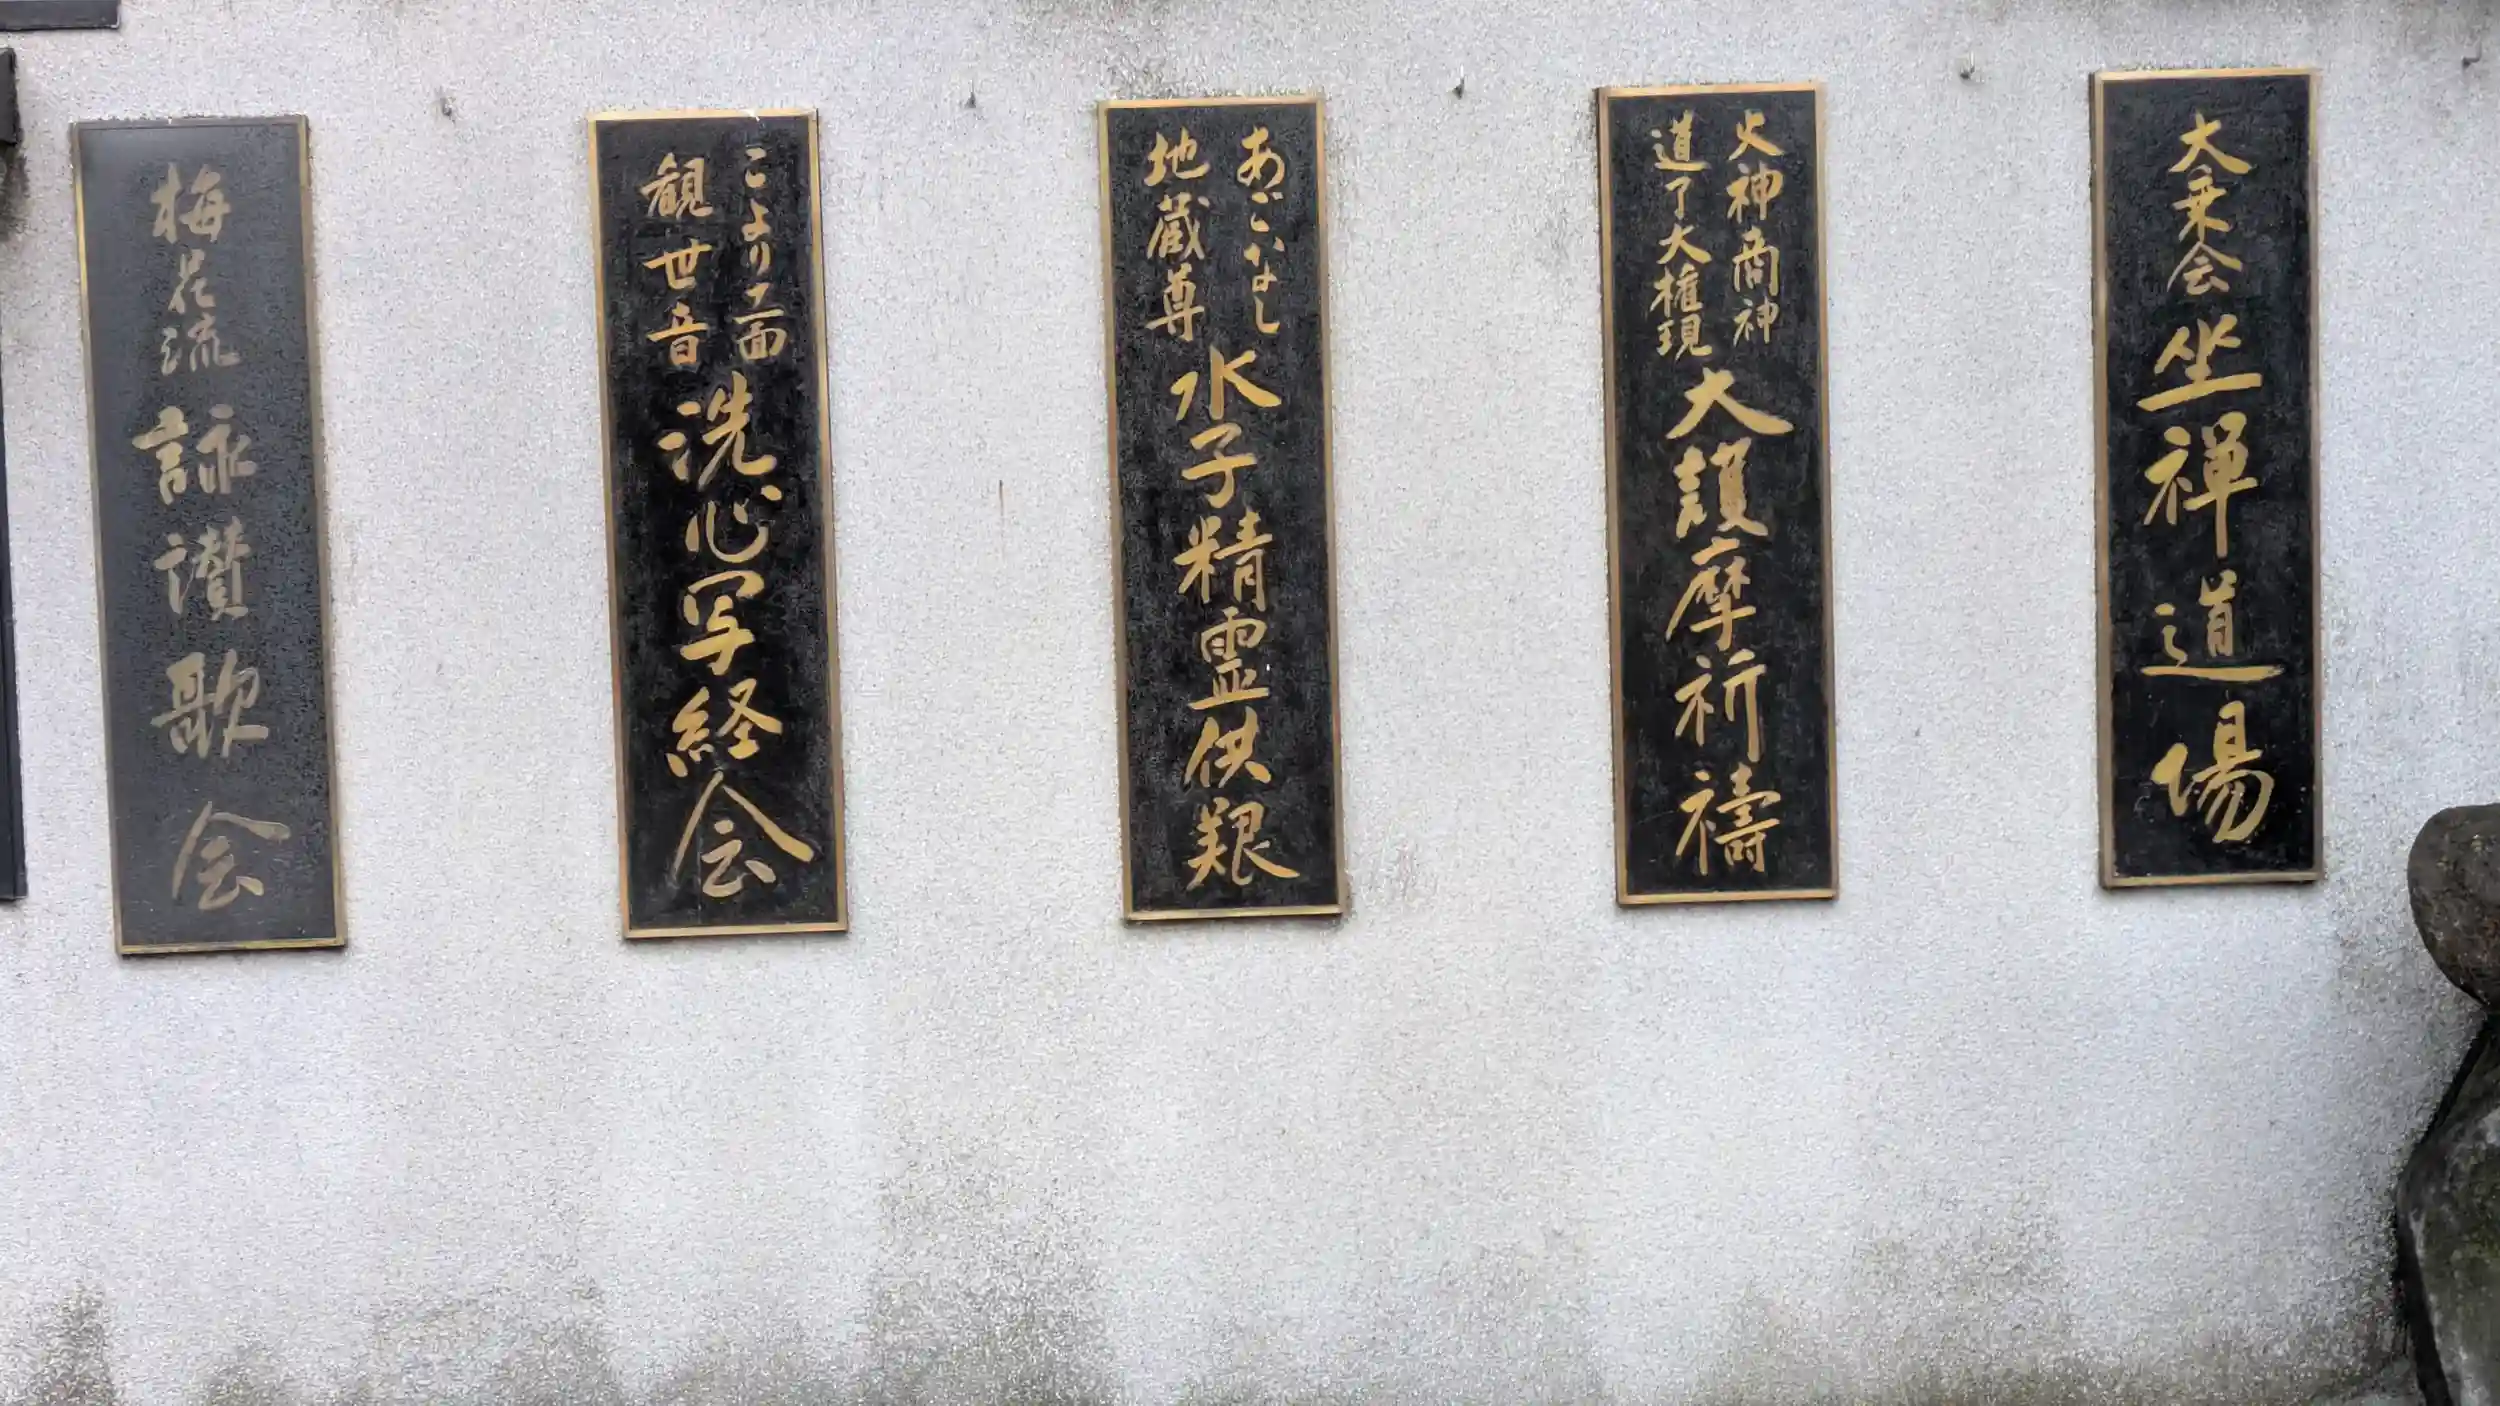 大乗会坐禅道場
火神商神
道了大権現
大護摩祈禱
あごなし
地蔵尊
水子精霊供養
こより十一面
観世音
洗心写経会
梅花流詠讃歌会